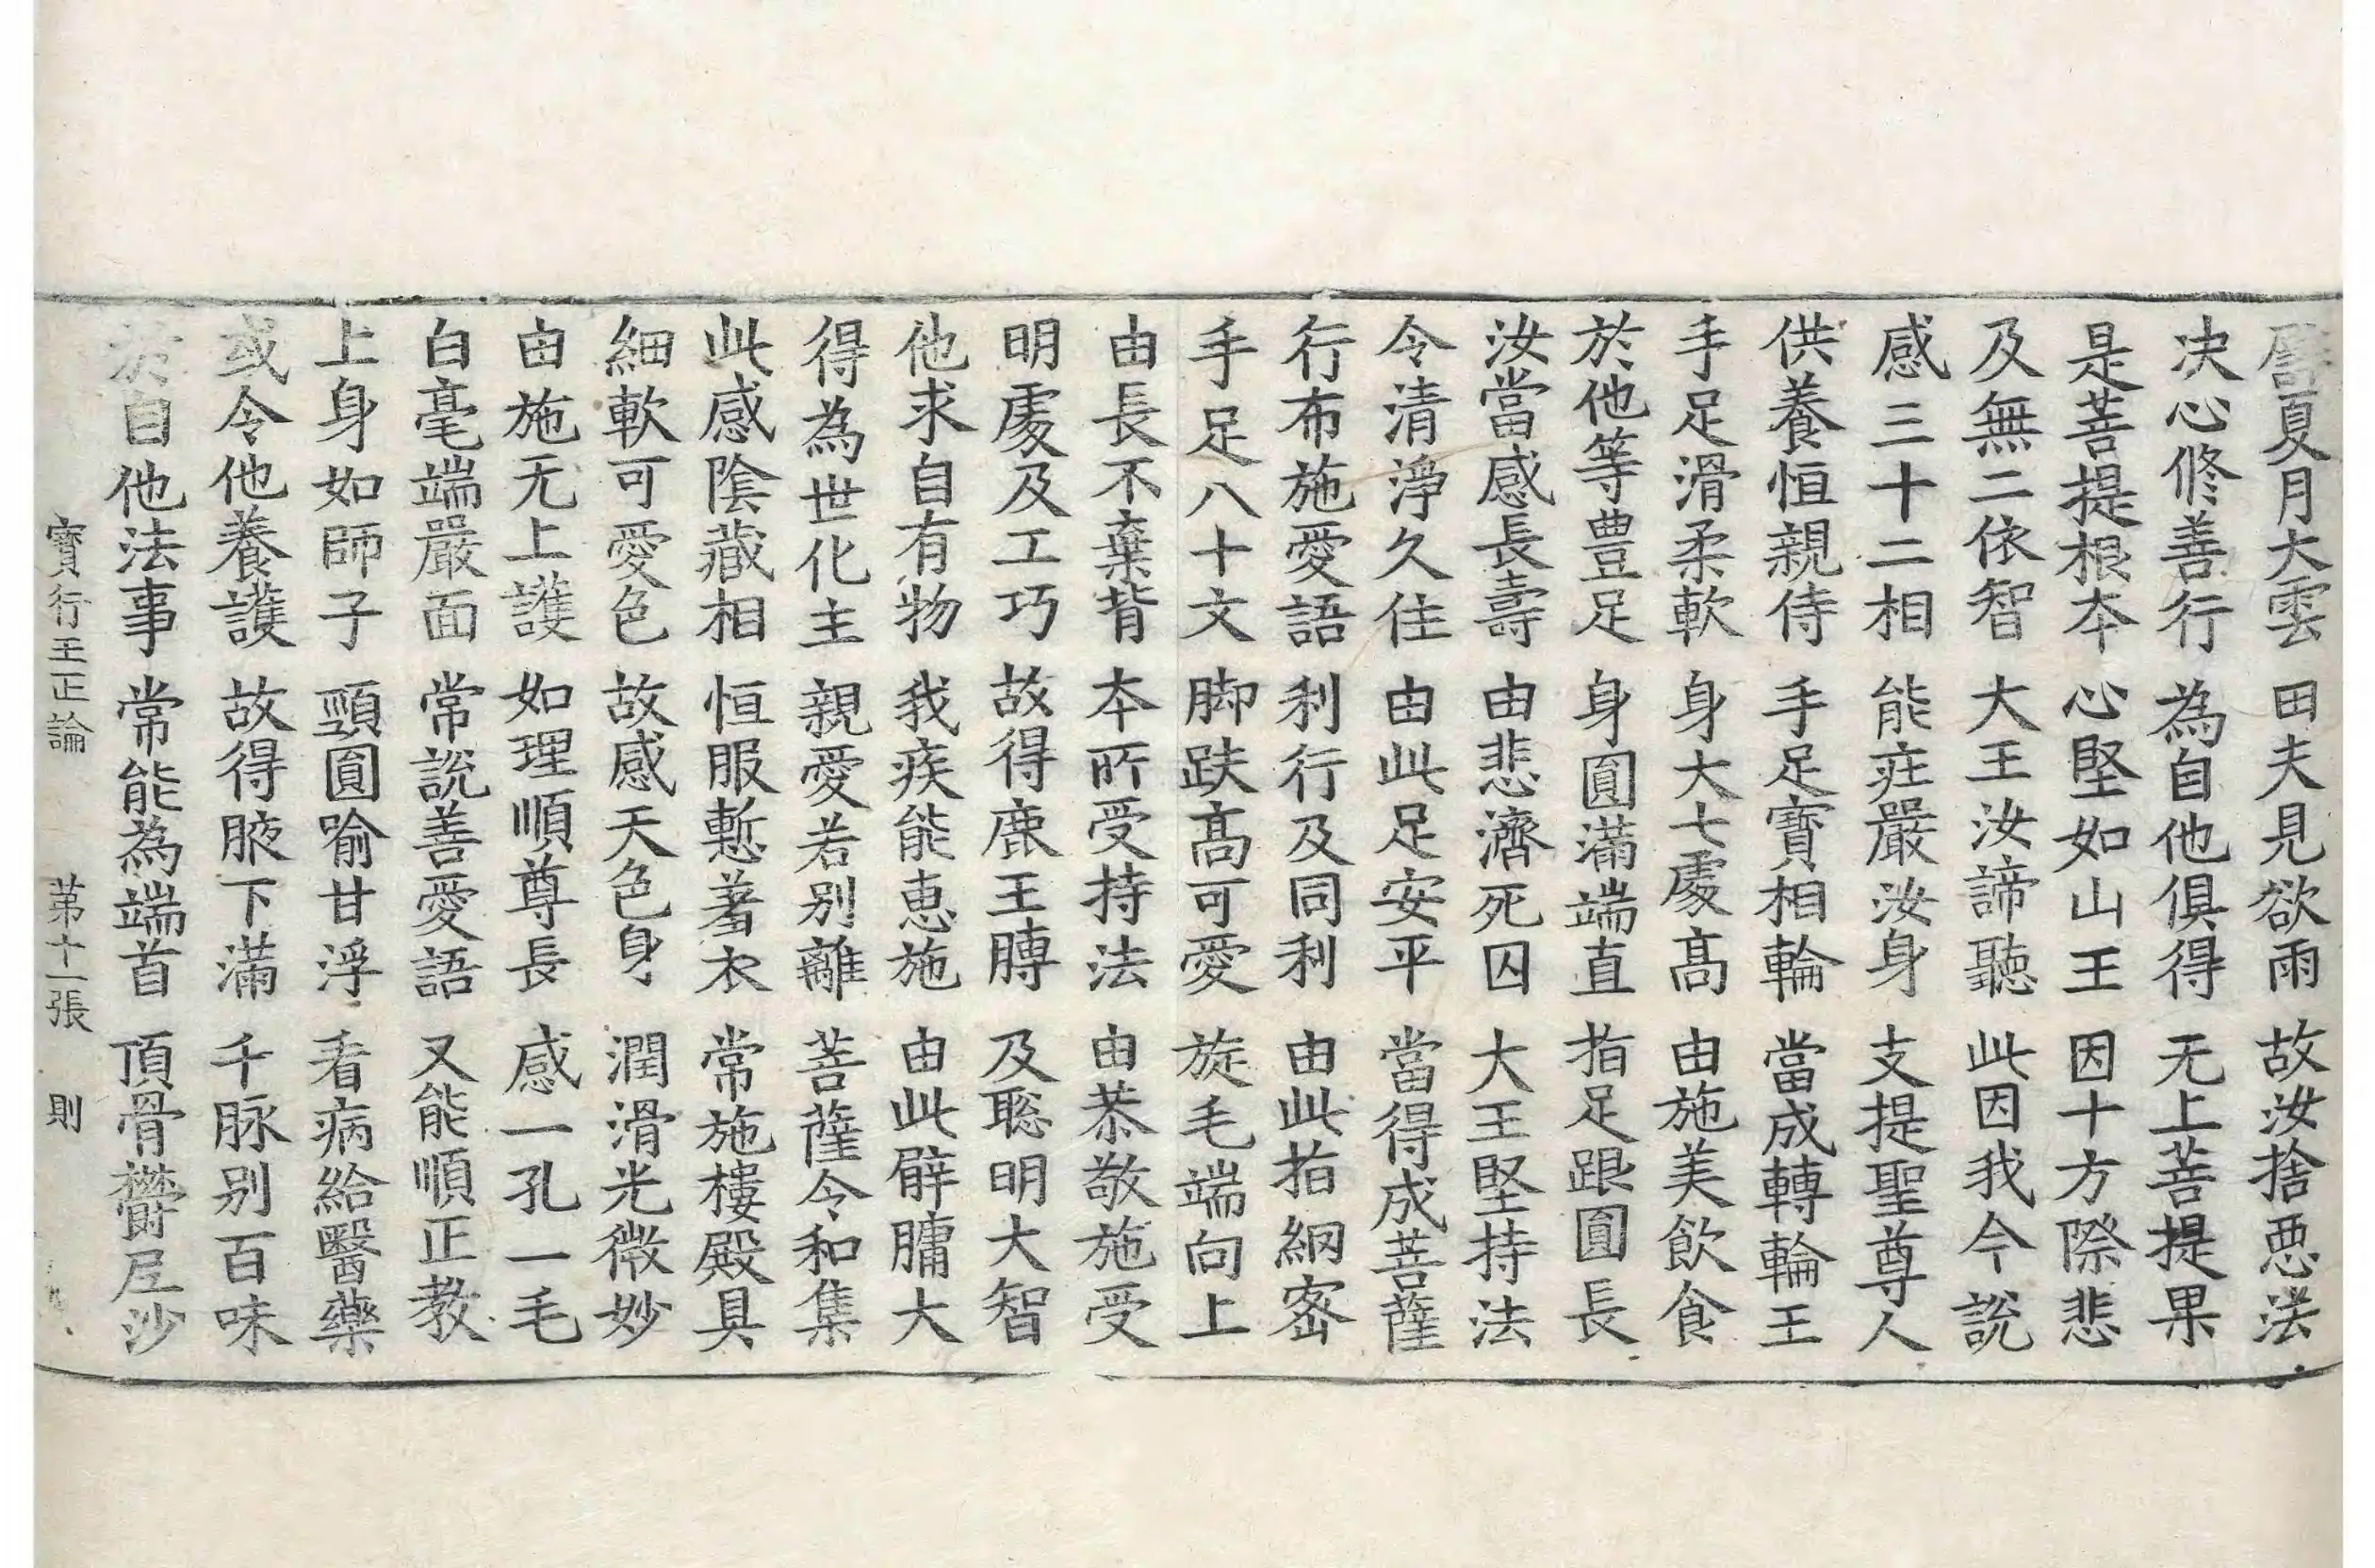 譬夏月大雲　田夫見欲雨　故汝捨惡法
决心修善行　為自他俱得　无上菩提果
是菩提根本　心堅如山王　因十方際悲
及無二依智　大王汝諦聽　此因我今說
感三十二相　能莊嚴汝身　支提聖尊人
供養恒親侍　手足寶相輪　當成轉輪王
手足滑柔軟　身大七處髙　由施美飲食
於他等豊足　身圓滿端直　指足跟圓長
汝當感長壽　由悲濟死囚　大王堅持法
令清淨久住　由此足安平　當得成菩薩
行布施愛語　利行及同利　由此指網密
手足八十文　脚趺髙可愛　旋毛端向上
由長不棄背　本所受持法　由恭敬施受
明處及工巧　故得鹿王膞　及聡明大智
他求自有物　我疾能惠施　由此臂𦟛大
得為世化主　親愛若别離　菩薩令和集
此感陰藏相　恒服慙著衣　常施樓殿具
細軟可愛色　故感天色身　潤滑光微妙
由施无上護　如理順尊長　感一孔一毛
白毫端嚴面　常說善愛語　又能順正教
上身如師子　頸圓喻甘浮　看病給醫藥
或令他養護　故得腋下滿　千脉别百味
於自他法事　常能為端首　頂骨欝尼沙
寶行王正論　苐十一張　則